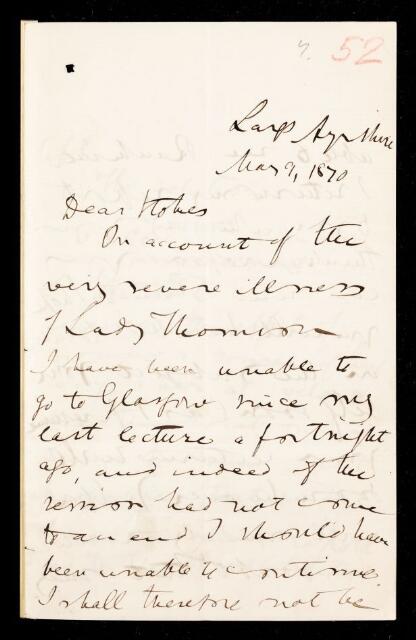 7. 52
Largs Ayrshire
May 9, 1870
Dear Stokes
On account of the
very severe illness
of Lady Thomson
I have been unable to
go to Glasgow since my
last lecture a fortnight
ago, and indeed if the
session had not come
to an end I should have
been unable to continue.
I shall therefore not be